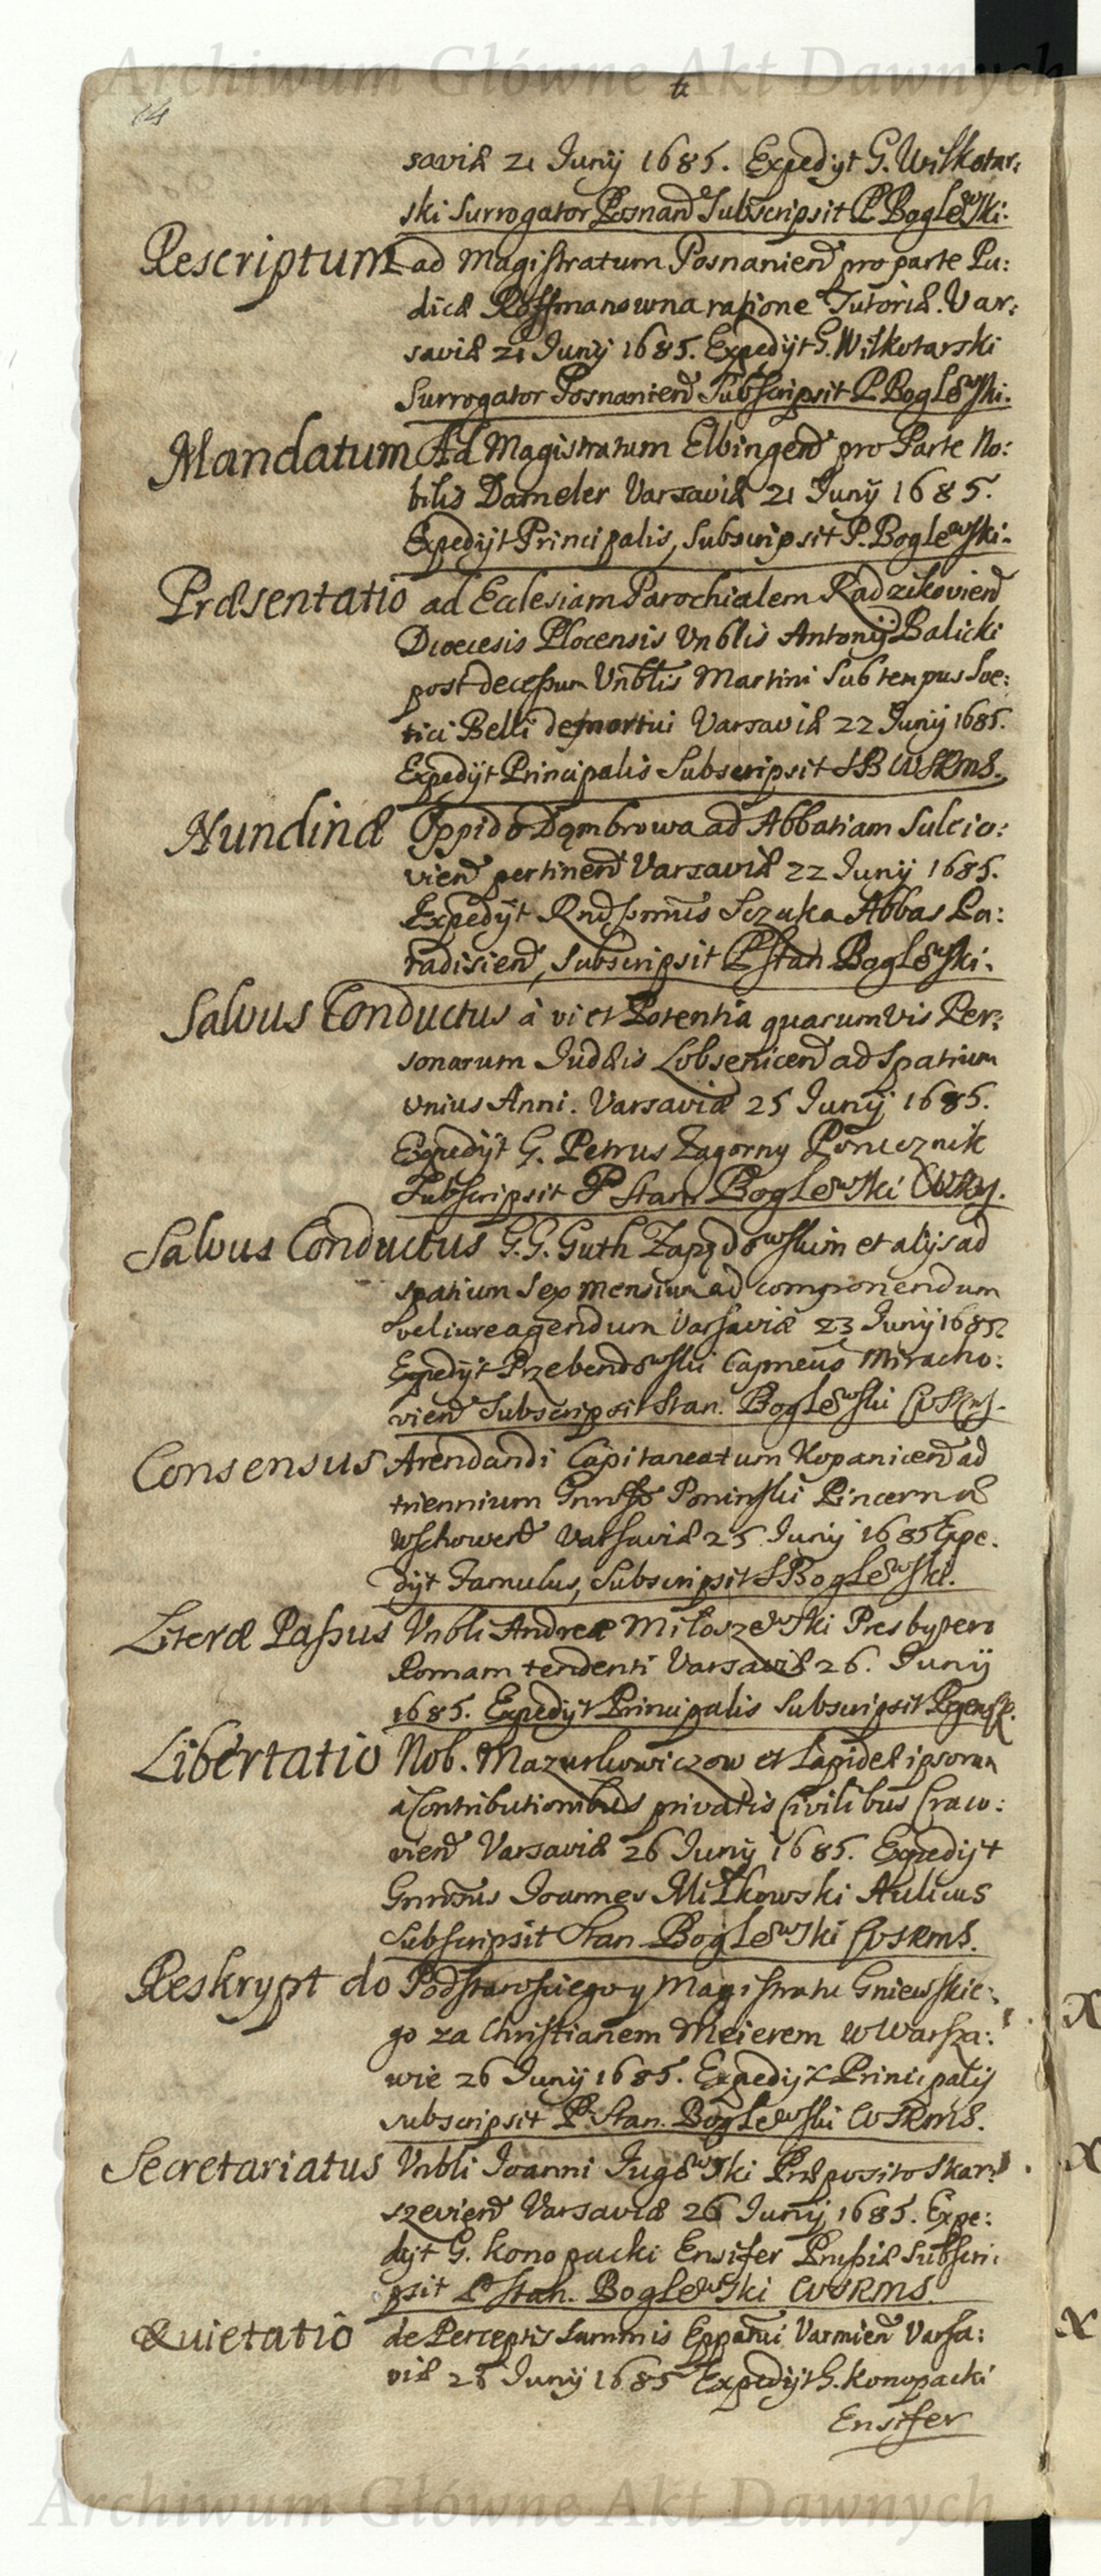 Archiwum Główne Akt Dawnych
14
saviæ 21 Junij 1685. Expedijt G. Wilkotar:
ski Surrogator Posnand Subscripsit P Boglewski.
Rescriptum ad Magistratum Posnaniend pro parte Pu:
dicæ Roffmanowna ratione Tutoriæ. Var:
saviæ 21 Junij 1685. Expedijt G. Wilkotarski
Surrogator Posnaniend Subscripsit P Boglewski.
Mandatum Ad Magistratum Elbingend pro Parte No:
bilis Dameler Varsaviæ 21 Junij 1685.
Expedijt Principalis, Subscripsit P. Boglewski.
Præsentatio ad Ecclesiam Parochialem Radzikoviend
Dioecesis Plocensis Vnblis Antonij Balicki
post decessum Vnblis Martini Sub tempus Sve:
tici Belli demortui Varsaviæ 22 Junij 1685.
Expedijt Principalis Subscripsit SB CVSRMS.
Nundinæ Oppido Dąmbrowa ad Abbatiam Suleio:
viend pertinend Varsaviæ 22 Junij 1685.
Expedijt Rnd Sczuka Abbas Pa:
radisiend, Subscripsit P Stan Boglewski.
Salvus Conductus à vi et Potentia quarumvis Per:
sonarum Judæis Lobsenicend ad Spatium
vnius Anni. Varsaviæ 25 Junij 1685.
Expedijt G. Petrus Zagorny Porucznik
Subscripsit P Stan Boglewski
Salvus Conductus G.G. Guth Zapędowskim et alijs ad
spatium Sex Mensium ad componendum
vel iure agendum Varsaviæ 23 Junij 1685.
Expedijt Przebendowski Capneus Miracho:
viend Subscripsit Stan. Boglewski
Consensus Arendandi Capitaneatum Kopanicend ad
triennium Poninski Pincernæ
Wschowend Varsaviæ 25 Junij 1685 Expe:
dijt Famulus, Subscripsit S Boglewski.
Literæ Passus Vnbli Andreæ Miłoszewski Presbytero
Romam tendenti Varsaviæ 26. Junij
1685. Expedijt Principalis Subscripsit
Libertatio Nob. Mazurkowiczow et Lapideæ ipsorum
à Contributionibus privatis Civilibus Craco:
viend Varsaviæ 26 Junij 1685. Expedijt
Gnrosus Joannes Miłkowski Aulicus
Subscripsit Stan Boglewski CVSRMS.
Reskrypt do Podstarosciego y Magistratu Gniewskie:
go za Christianem Meierem w Warsza:
wie 26 Junij 1685. Expedijt Principalis
subscripsit P. Stan. Boglewski CVSRMS.
Secretariatus Vnbli Joanni Jugowski Præposito Skar:
szeviend Varsaviæ 26 Junij 1685. Expe:
dijt G. Konopacki Ensifer Prussiæ Subscri:
psit P Stan. Boglewski CVSRMS.
Quietatio de Perceptis Summis Eppatui Varmiend Varsa:
viæ 26 Junij 1685 Expedijt G. Konopacki
Ensifer
Archiwum Główne Akt Dawnych